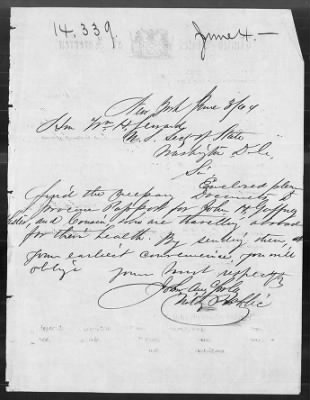 14.339.
June 4.—
New York June 3/64
Hon Wm H. Seward
U.S. Secy of State
Washington D.C.
Sir
Enclosed please
find the necessary
procure Passports for John H.
and Cousin, who are traveling abroad
for their health. By sending them at
your earliest convenience, you will
oblige
yours most respectfy
John
Noty Public